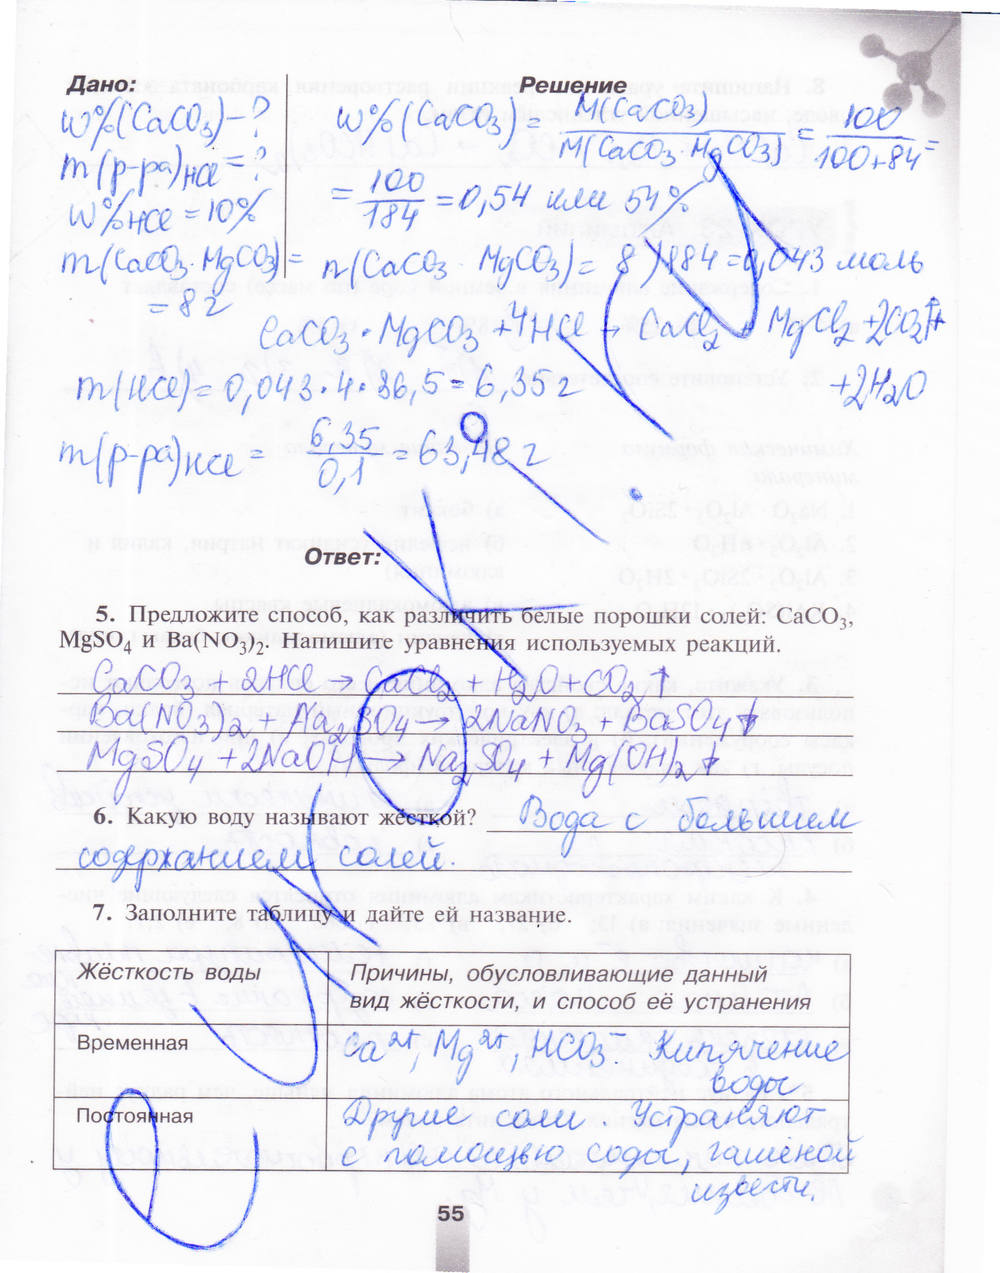 Дано:
Решение
w%(CaCO3) - ?
w%(CaCO3) = M(CaCO3) / M(CaCO3·MgCO3) = 100 / 100+84 =
m(р-ра)HCl = ?
= 100/184 = 0,54 или 54%
w%HCl = 10%
m(CaCO3·MgCO3) = 8г
n(CaCO3·MgCO3) = 8/184 = 0,043 моль
CaCO3·MgCO3 + 4HCl → CaCl2 + MgCl2 + 2CO2↑ +
+ 2H2O
m(HCl) = 0,043·4·36,5 = 6,35г
m(р-ра)HCl = 6,35/0,1 = 63,48 г
Ответ:
5. Предложите способ, как различить белые порошки солей: CaCO3,
MgSO4 и Ba(NO3)2. Напишите уравнения используемых реакций.
CaCO3 + 2HCl → CaCl2 + H2O + CO2↑
Ba(NO3)2 + Na2SO4 → 2NaNO3 + BaSO4↓
MgSO4 + 2NaOH → Na2SO4 + Mg(OH)2↓
6. Какую воду называют жёсткой? Вода с большим
содержанием солей.
7. Заполните таблицу и дайте ей название.
Жёсткость воды
Причины, обусловливающие данный
вид жёсткости, и способ её устранения
Временная
Ca2+, Mg2+, HCO3-. Кипячение
воды
Постоянная
Другие соли. Устраняют
с помощью соды, гашеной
извести.
55